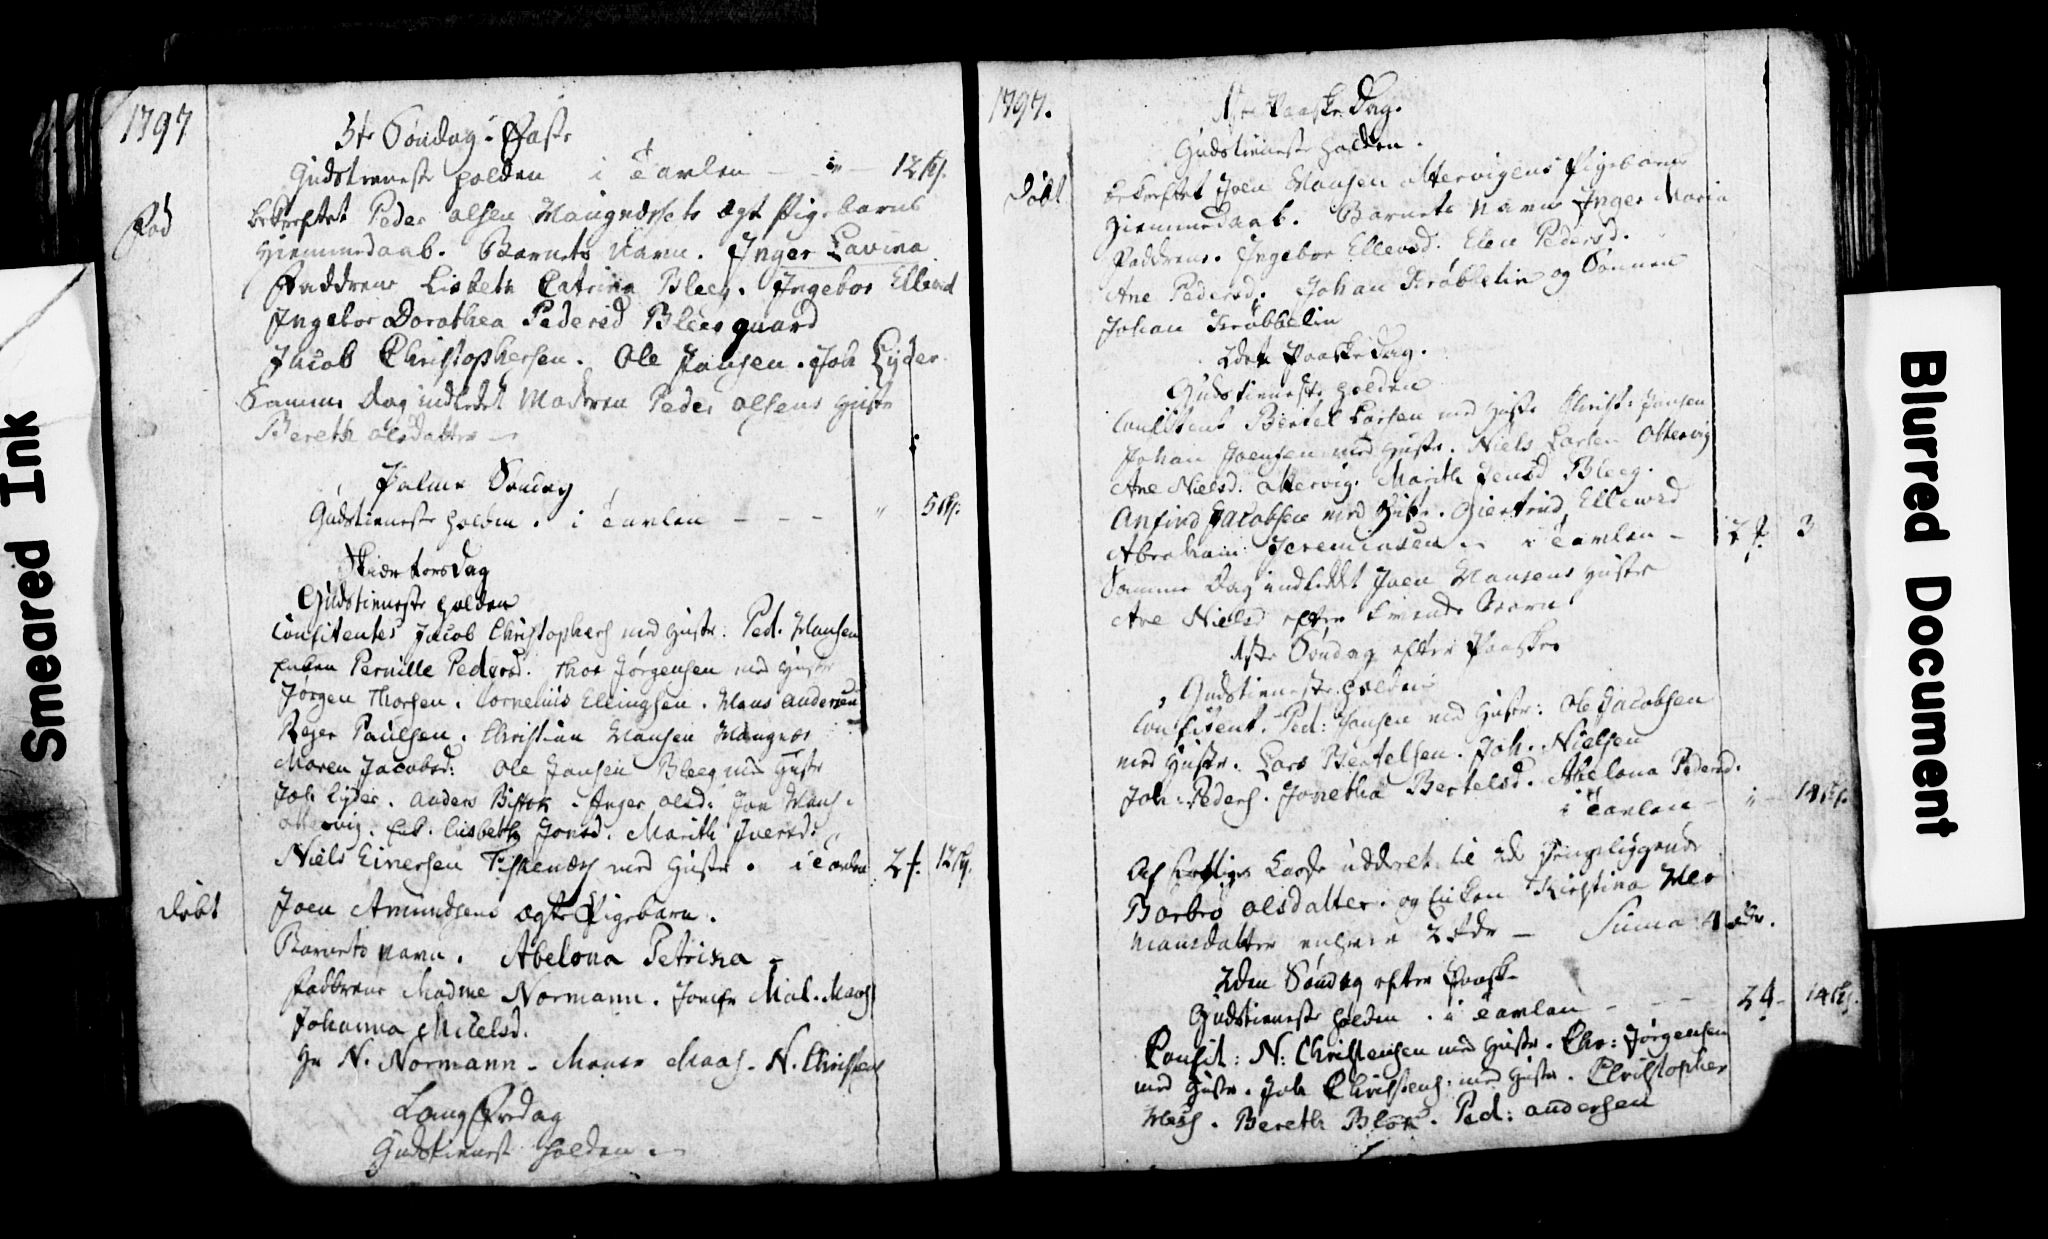 Smeared Ink
1797
5te Søndag i Faste
Gudstieneste holden i Tavlen - - " - 12 ß.
Fød
bekreftet Peder Olsen Mangnæssets ægte Pigebarns
Hiemmedaab. Barnets Navn. Inger Lavina
Faddrene Lisbeth Catrina Bleeg. Ingebor Ellevsd
Ingebor Dorothea Pedersd Bleesgaard
Jacob Christophersen. Ole Jansen. Joh Lyder
Samme Dag indledet Modren Peder Olsens Hustr
Bereth Olsdatter
Palme Søndag
Gudstieneste holden. i Tavlen - - - " 5 ß.
Skier torsdag
Gudstieneste holden
Confitentes Jacob Christophers med Hustr: Ped. Hansen
Enken Pernille Pedersd. Thor Jørgensen med Hustr
Jørgen Thorsen. Cornelius Ellingsen. Hans Andersen
Reger Paulsen. Christian Hansen Mangnæs
Maren Jacobsd: Ole Jansen Bleeg med Hustr
Joh: Lyder. Anders Inger Olsd: Jon Hans.
Ottervig. Enk. Lisbeth Jonsd. Marith Iversd.
Niels Einersen Fiskenæs med Hustr. i Tavlen 2 f. 12 ß.
Døbt
Joen Amundsens ægte Pigebarn.
Barnets Navn. Abelona Petrina
Faddrene Madme Normann. Jomfr Mal. Maas
Johanna Nielsd.
Hr N. Normann. Monsr Maas. N. Christens
Lang Fredag
Gudstieneste holden.
1797.
1ste Paaske Dag.
Gudstieneste holden.
Døbt
bekreftet Joen Hansen Ottervigens Pigebarns
Hiemmedaab. Barnets Navn Inger Maria
Faddrene. Ingebor Ellevsd. Elen Pedersd.
Ane Pedersd. Johan Frøbbelin og Sønnen
Johan Frøbbelin
2den Paaske Dag.
Gudstieneste holden
Confitent Bertel Larsen med Hustr Christ. Jansen
Johan Joensen med Hustr. Niels Larsen Ottervig
Ane Nielsd. Ottervig. Marith Jensd Bleeg.
Anfind Jacobsen med Hustr. Giertrud Ellevsd
Abraham Jeremiasen i Tavlen - 2 f. 3
Samme Dag indledet Joen Hansens Hustr
Ane Nielsd efter levende Foster
1ste Søndag efter Paaske
Gudstieneste holden
Confitent. Ped: Jansen med Hustr: Ole Jacobsen
med Hustr. Lars Bertelsen. Joh. Nielsen
Joh: Peders. Jonetha Bertelsd. Abelona Pedersd.
i Tavlen - " - 14 ß.
Af Fattiges Casse uddeelt til 2de Sengeliggende
Barbro Olsdatter. og Enken Kirstina
Hansdatter enhver 2 Rdr - Suma 4 Rdr.
2den Søndag efter Paaske
Gudstieneste holden. i Tavlen - - - 2 f - 14 ß.
Confit: N: Christensen med Hustr. Chr: Jørgensen
med Hustr. Joh Christens. med Hustr. Christopher
Bereth Blok. Ped: Andersen
Blurred Document